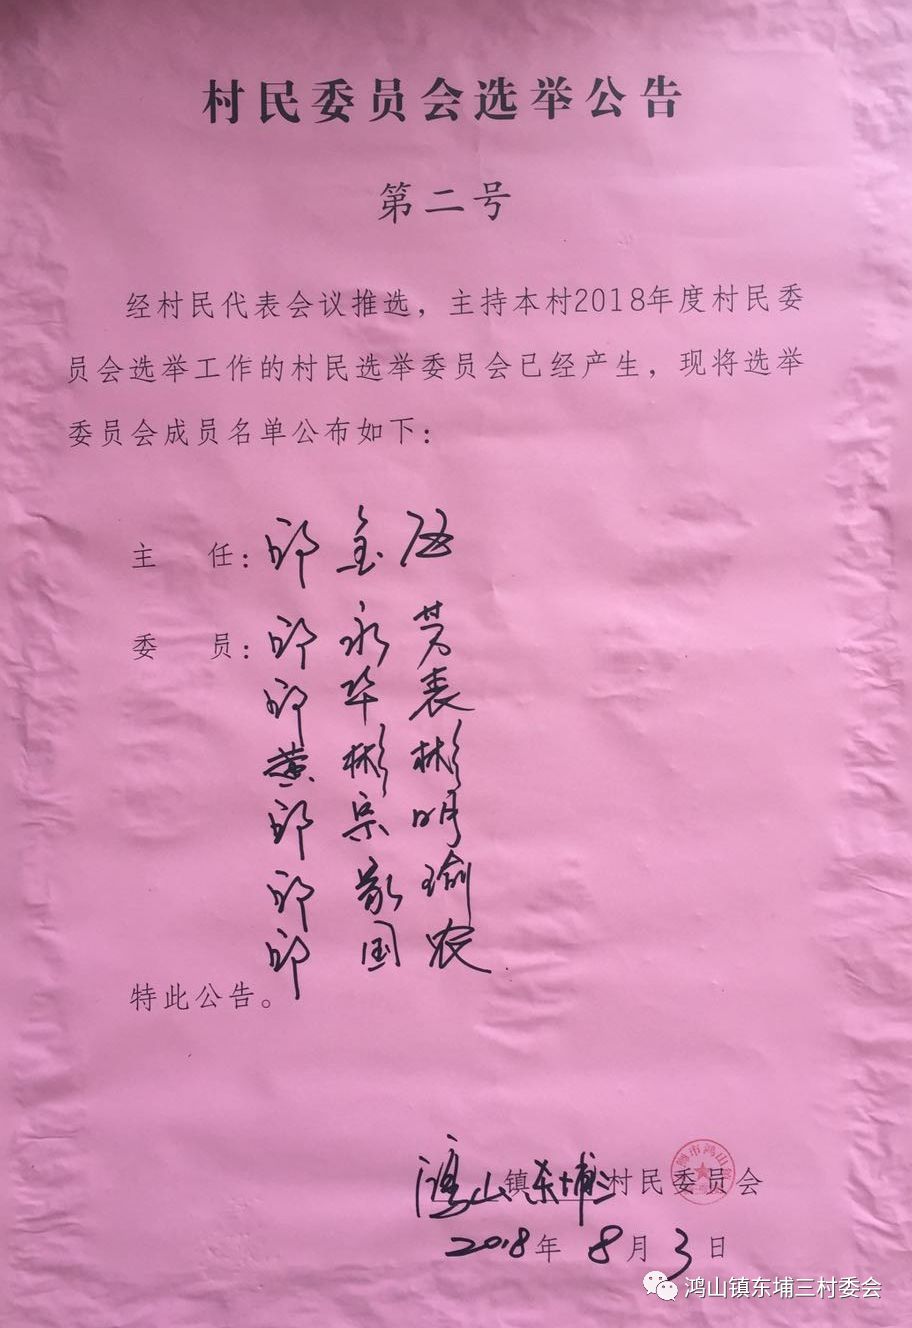 村民委员会选举公告
第二号
经村民代表会议推选，主持本村2018年度村民委
员会选举工作的村民选举委员会已经产生，现将选举
委员会成员名单公布如下：
主 任：邱金
委 员：邱永
邱华表
黄彬彬
邱宗明
邱敬瑜
邱国农
特此公告。
鸿山镇东埔三村民委员会
2018年8月3日
鸿山镇东埔三村委会